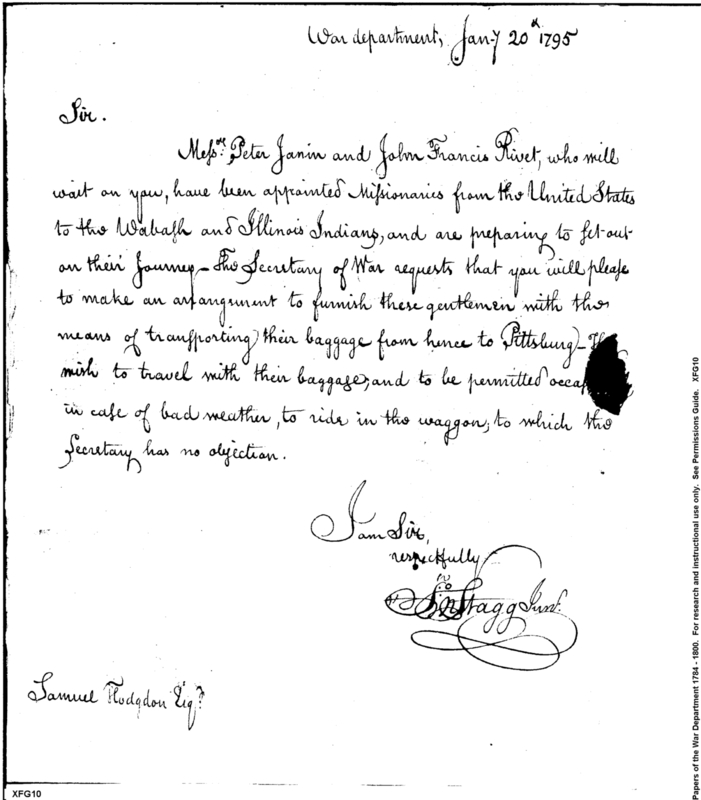 War department, Jany 20th 1795
Sir.
Messrs. Peter Janin and John Francis Rivet, who will
wait on you, have been appointed Missionaries from the United States
to the Wabash and Illinois Indians, and are preparing to set out
on their Journey – The Secretary of War requests that you will please
to make an arrangement to furnish these gentlemen with the
means of transporting their baggage from hence to Pittsburg –
wish to travel with their baggage, and to be permitted
in case of bad weather, to ride in the waggon; to which the
Secretary has no objection.
I am Sir,
respectfully
Jno Stagg Junr.
Samuel Hodgdon Esqr.
XFG10
Papers of the War Department 1784 - 1800. For research and instructional use only. See Permissions Guide. XFG10